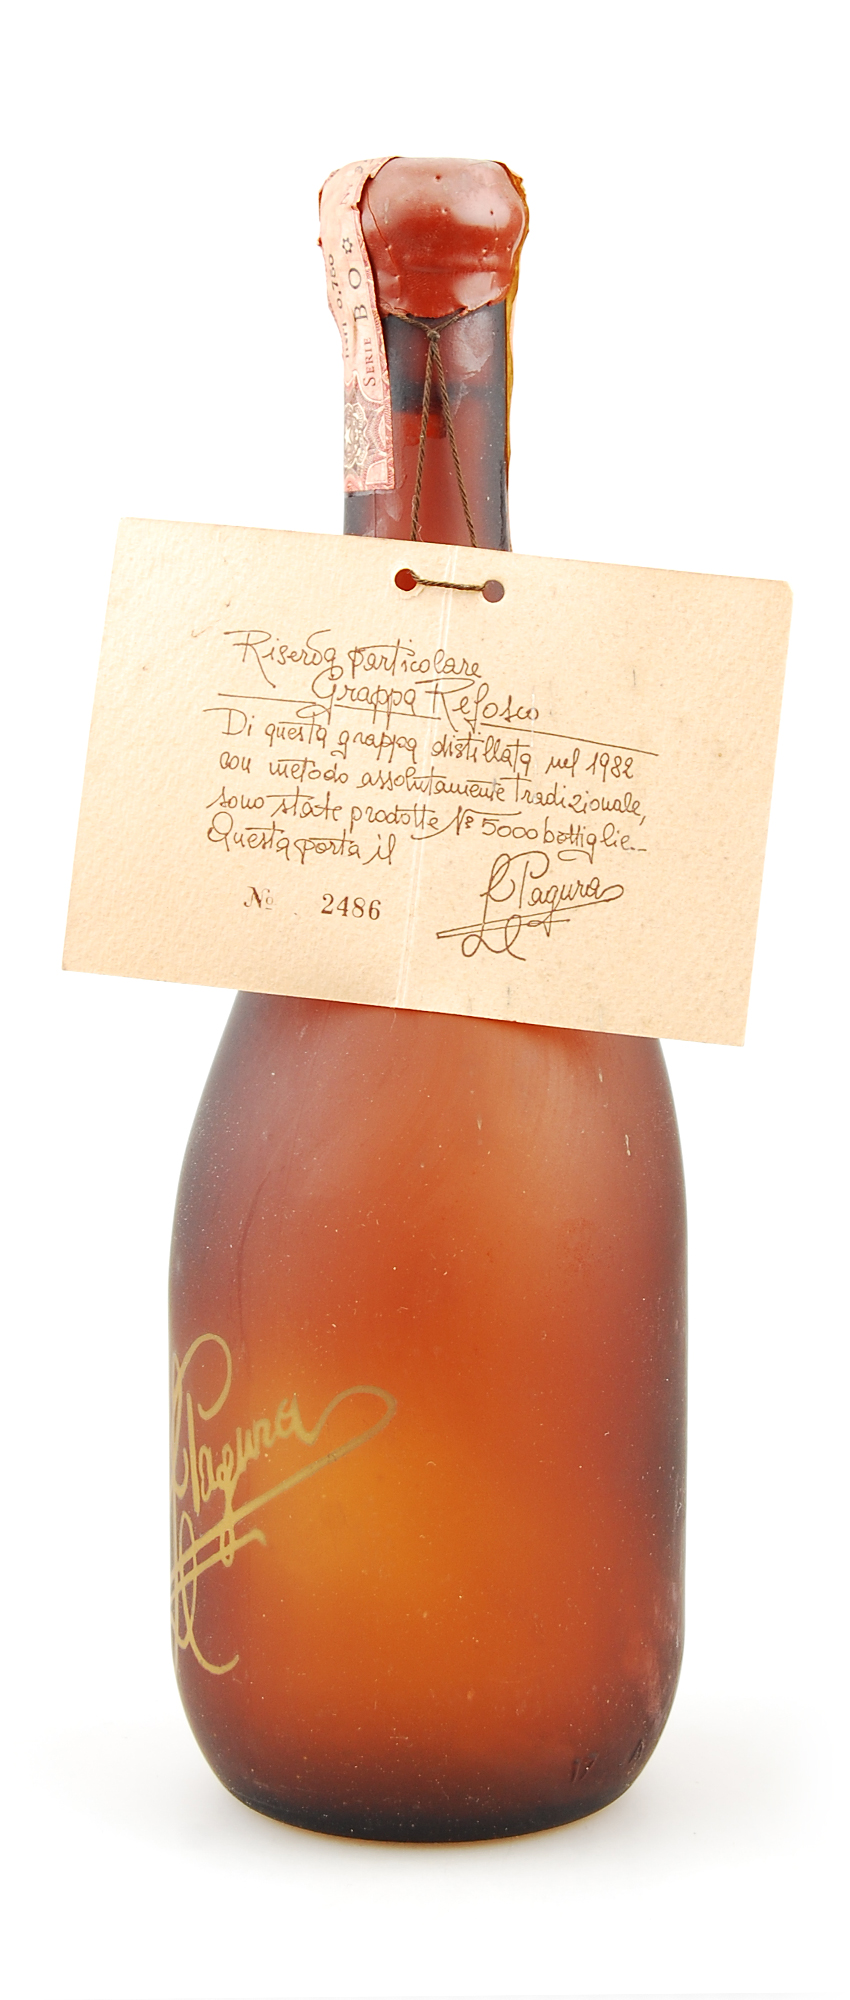 0.750
SERIE BO
Riserva particolare
Grappa Refosco
Di questa grappa distillata nel 1982
con metodo assolutamente tradizionale,
sono state prodotte Nº 5000 bottiglie..
Questa porta il
Nº 2486
Pagura
Pagura